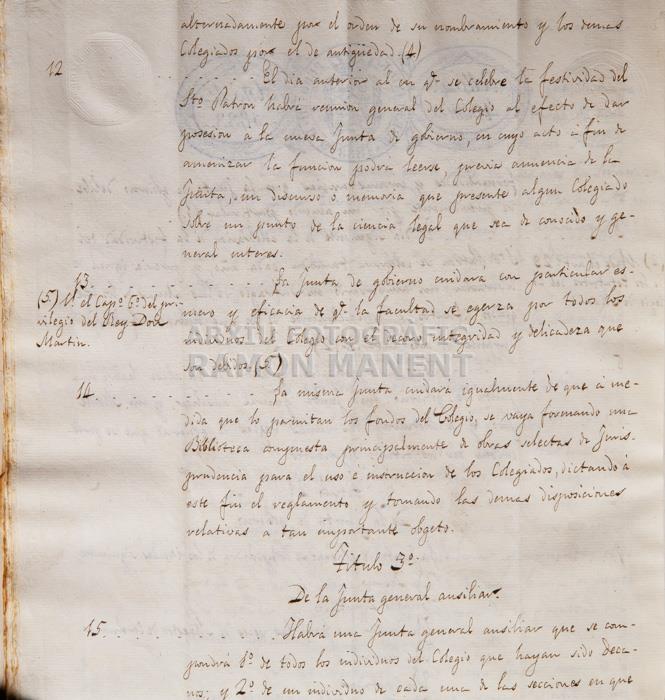 alternadamente por el orden de su nombramiento y los demas
Colegiados por el de antigüedad. (4)
12 . . . . . . El dia anterior al en qe. se celebre la festividad del
Sto. Patron habrá reunion general del Colegio al efecto de dar
posesion á la nueva Junta de gobierno, en cuyo acto á fin de
amenizar la funcion podra leerse, previa anuencia de la
Junta, un discurso ó memoria que presente algun Colegiado
sobre un punto de la ciencia legal que sea de conocido y ge-
neral interes.
13. . . . . . . La Junta de gobierno cuidara con particular es-
mero y eficacia de qe. la facultad se egerza por todos los
individuos del Colegio con el decoro, integridad y delicadeza que
son debidos. (5)
(5) Vs. el Capo. 6o. del pri-
vilegio del Rey Don
Martin.
ARXIU FOTOGRÀFIC
RAMON MANENT
14. . . . . . . La misma Junta cuidará igualmente de que á me-
dida que lo permitan los fondos del Colegio, se vaya formando una
Biblioteca compuesta principalmente de obras selectas de Juris-
prudencia para el uso é instruccion de los Colegiados, dictando á
este fin el reglamento y tomando las demas disposiciones
relativas a tan importante obgeto.
Titulo 3o.
De la Junta general auxiliar.
15. Habrá una Junta general auxiliar que se com-
pondrá 1o. de todos los individuos del Colegio que hayan sido Deca-
nos; y 2o. de un individuo de cada una de las secciones en que